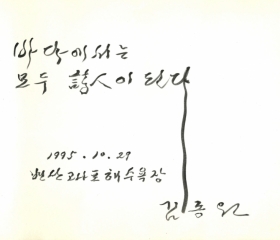 바닷에서는
모두 詩人이 된다
1995. 10. 29
변산고사포해수욕장
김용원